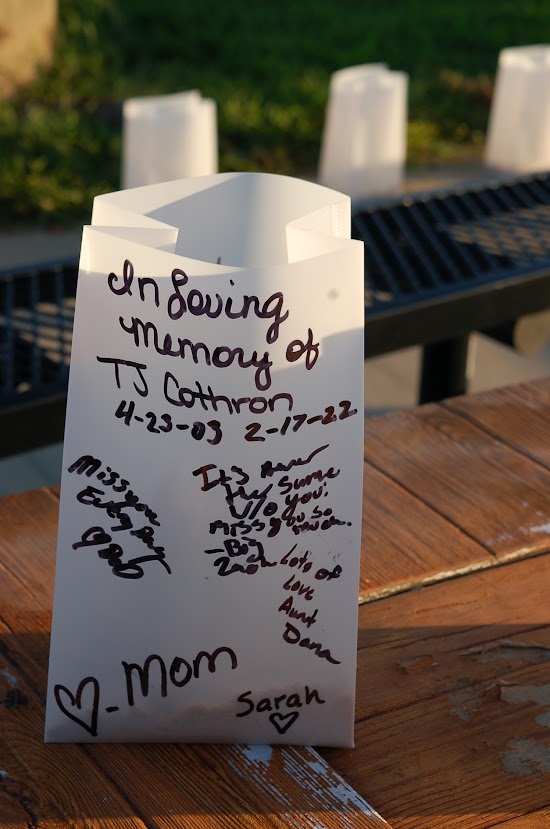 In Loving
memory of
TJ Cothron
4-23-03 2-17-22
Miss you
Every Day
It's never
the same
w/o you.
miss you so
much.
-Big
Zach
Lots of
Love
Aunt
Dana
♡-Mom
Sarah
♡